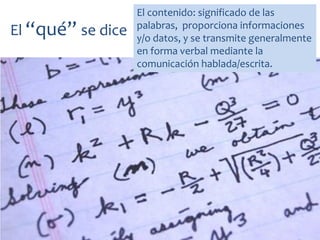 El “qué” se dice
El contenido: significado de las
palabras, proporciona informaciones
y/o datos, y se transmite generalmente
en forma verbal mediante la
comunicación hablada/escrita.
these expressions
(l) r₁ = y³
(n) k² + Rk − Q³/27 = 0
Solving (m) we obtain
(o) k₁ = −R/2 + √(R²/4) + Q³
assigning
y³ and